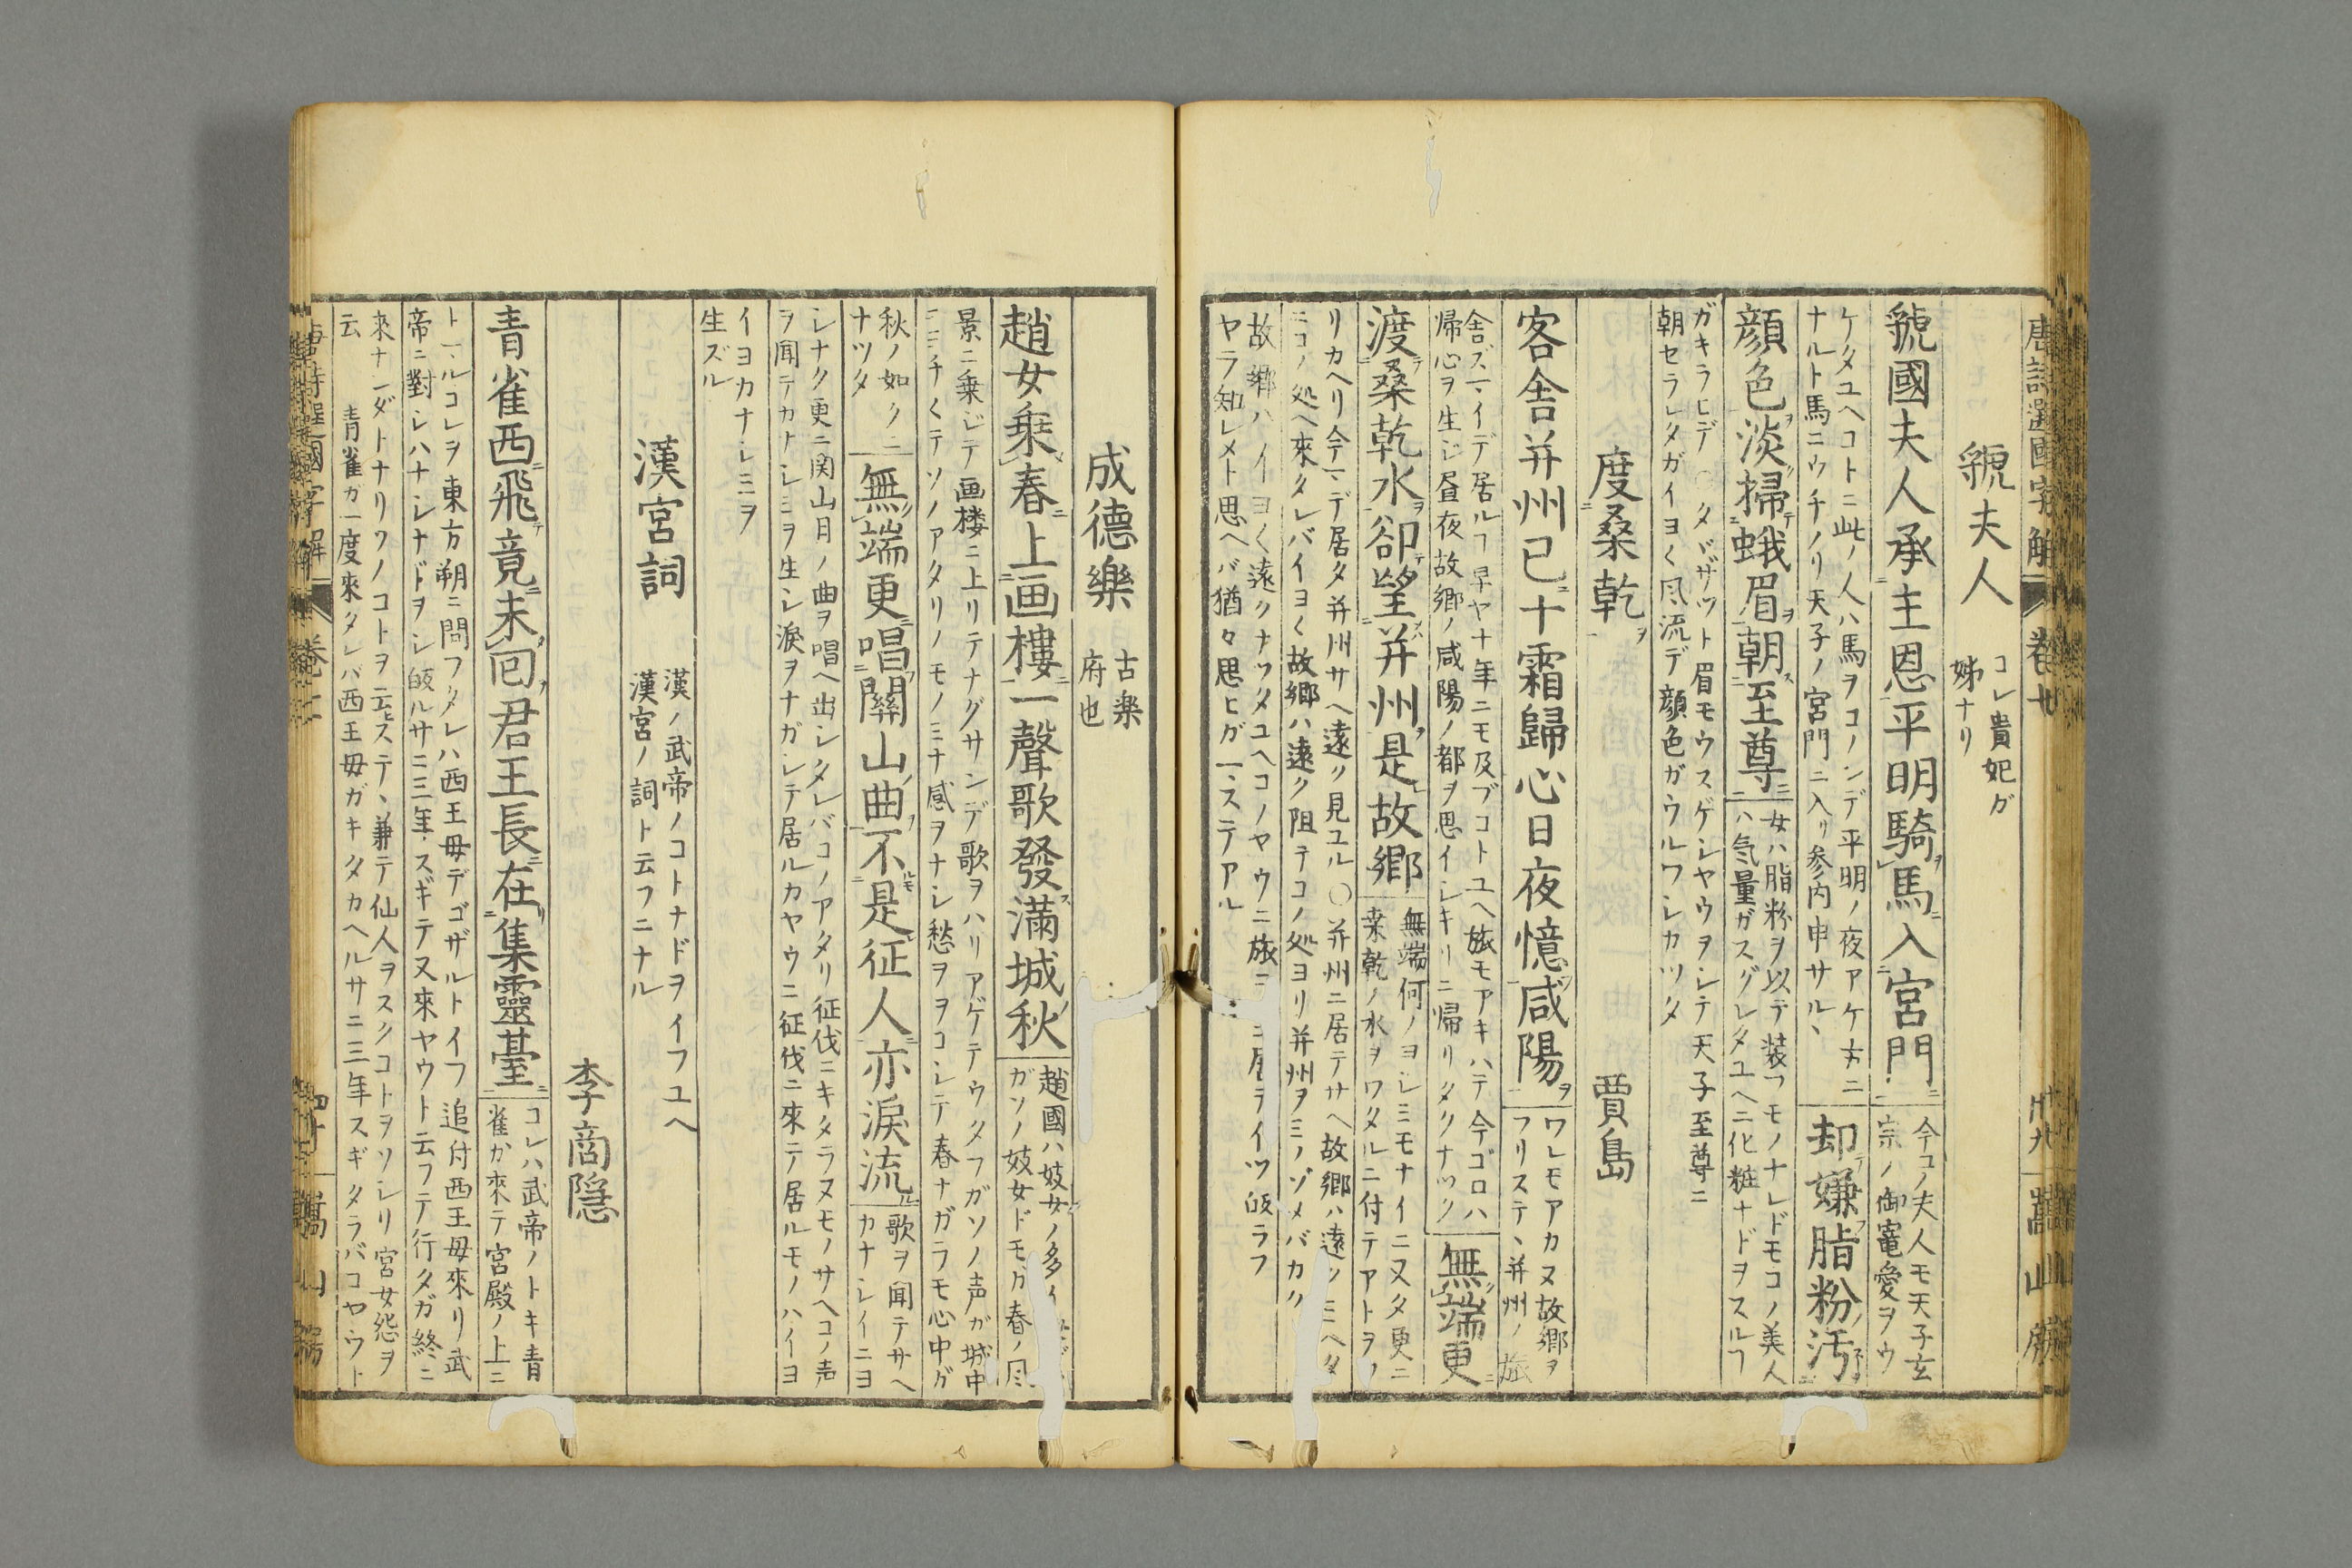 唐詩選國字解
卷七
嵩山房
虢夫人
コレ貴妃ガ
姊ナリ
虢國夫人承主恩平明騎馬入宮門
今コノ夫人モ天子玄
宗ノ御寵愛ヲウ
ケタユヘコトニ此ノ人ハ馬ヲコノンデ平明ノ夜アケ方ニ
ナルト馬ニウチノリ天子ノ宮門ニ入リ参内申サル、
却嫌脂粉汚
顔色淡掃蛾眉朝至尊
女ハ脂粉ヲ以テ装フモノナレドモコノ美人
ハ気量ガスグレタユヘニ化粧ナドヲスルフ
ガキラヒデ○タヾザツト眉モウスゲシヤウヲシテ天子至尊ニ
朝セラレタガイヨ〱風流デ顔色ガウルワシカツタ
度桑乾
賈島
客舎并州已十霜歸心日夜憶咸陽
ワレモアカヌ故郷ヲ
フリステ、并州ノ旅
舎ズマイデ居ルフ早ヤ十年ニモ及ブコトユヘ旅モアキハテ今ゴロハ
帰心ヲ生ジ昼夜故郷ノ咸陽ノ都ヲ思イシキリニ帰リタクナツタ
無端更
渡桑乾水卻望并州是故郷
無端何ノヨシミモナイニ又タ更ニ
桒乾ノ水ヲワタルニ付テアトヲフ
リカヘリ今マデ居タ并州サヘ遠ク見ユル○并州ニ居テサヘ故郷ハ遠クミヘタ
ニコノ処ヘ來タレバイヨ〱故郷ハ遠ク阻テコノ処ヨリ并州ヲミノゾメバカク
故郷ハイヨ〱遠クナツタユヘコノヤウニ旅ニ居テイツ皈ラフ
ヤラ知レメト思ヘバ猶々思ヒガマステアル
成德樂
古楽
府也
趙女乗春上画樓一聲歌發滿城秋
趙國ハ妓女ノ多イ
ガソノ妓女ドモガ春ノ風
景ニ乗ジテ画楼ニ上リテナグサンデ歌ヲハリアゲテウタフガソノ声ガ城中
ニミチ〱テソノアタリノモノミナ感ヲナシ愁ヲヲコシテ春ナガラモ心中ガ
秋ノ如クニ
ナツタ
無端更唱關山曲不是征人亦淚流
歌ヲ聞テサヘ
カナシイニヨ
シナク更ニ関山月ノ曲ヲ唱ヘ出シタレバコノアタリ征伐ニキタラヌモノサヘコノ声
ヲ聞テカナシミヲ生シ淚ヲナガシテ居ルカヤウニ征伐ニ來テ居ルモノハイヨ
イヨカナシミヲ
生ズル
漢宮詞
漢ノ武帝ノコトナドヲイフユヘ
漢宮ノ詞ト云フニナル
李商隠
青雀西飛竟未回君王長在集靈臺
コレハ武帝ノトキ青
雀カ來テ宮殿ノ上ニ
トマルコレヲ東方朔ニ問フタレハ西王母デゴザルトイフ追付西王母來リ武
帝ニ對シハナシナドヲシ皈ルサニ三年スギテ又來ヤウト云フテ行タガ終ニ
來ナンダトナリワノコトヲ云ステ、兼テ仙人ヲスクコトヲソシリ宮女怨ヲ
云
青雀ガ一度來タレバ西王母ガキタカヘルサニ三年スギタラバコヤウト
唐詩選國字解
嵩山房